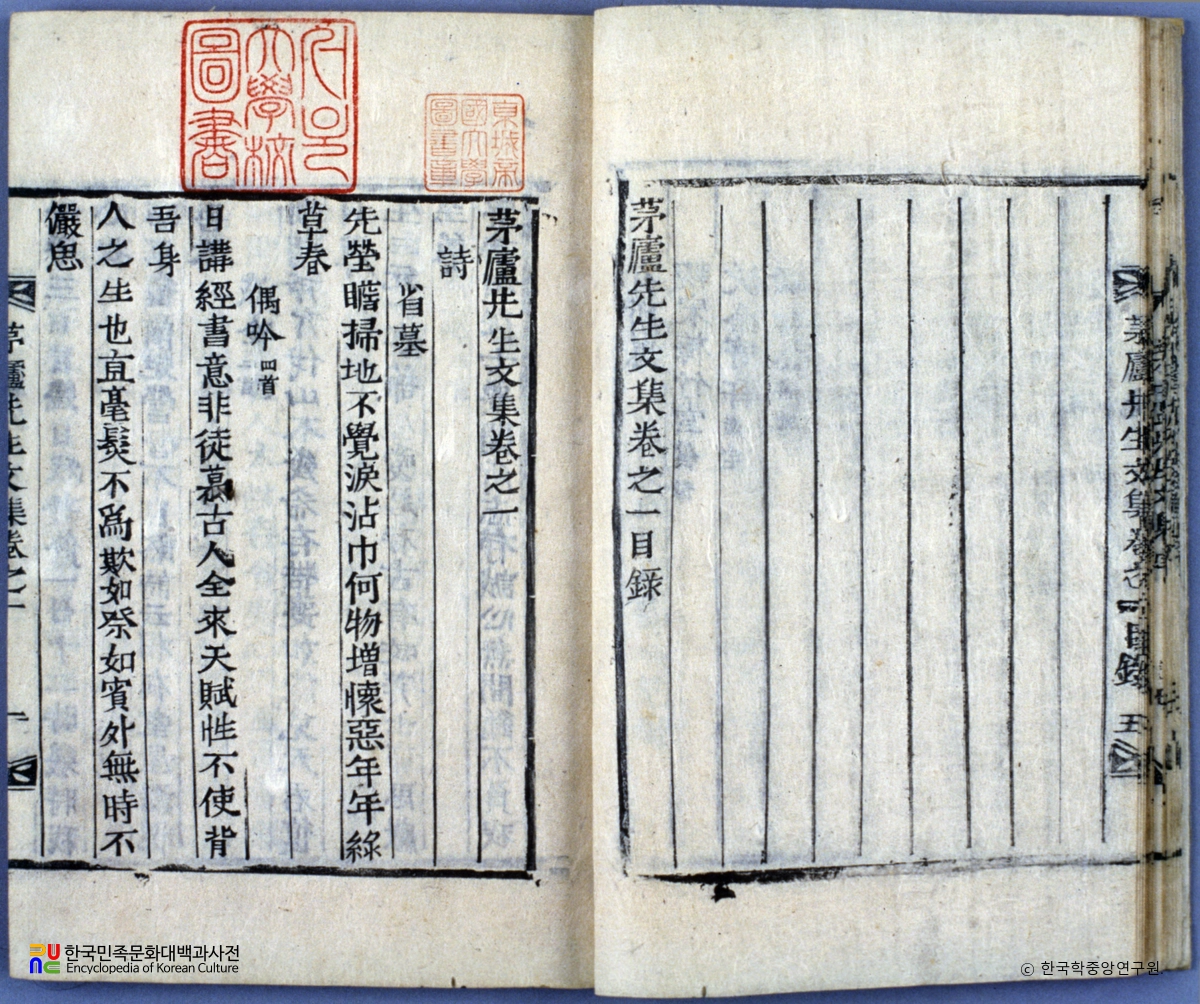 茅廬先生文集卷之一目錄
茅廬先生文集卷之一目錄 五
茅廬先生文集卷之一
詩
省墓
先塋瞻掃地不覺淚沾巾何物增懷惡年年綠
草春
偶吟四首
日講經書意非徒慕古人全來天賦性不使背
吾身
人之生也直毫髮不爲欺如祭如賓外無時不
儼思
茅廬先生文集卷之一
大學校
圖書
東城帝
國大學
圖書章
한국민족문화대백과사전
Encyclopedia of Korean Culture
ⓒ 한국학중앙연구원